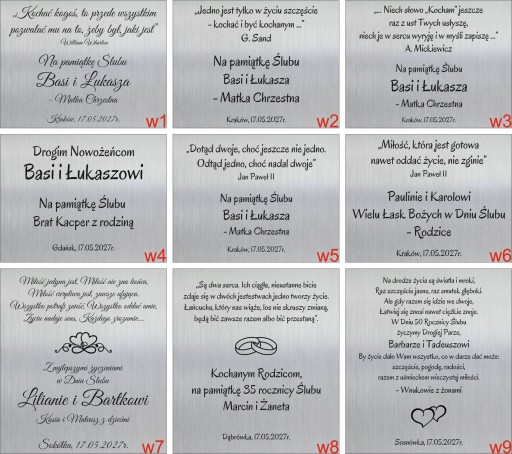 „Kochać kogoś, to przede wszystkim
pozwalać mu na to, żeby był, jaki jest"
William Wharton
Na pamiątkę Ślubu
Basi i Łukasza
- Matka Chrzestna
Kraków, 17.05.2027r.
w1
„Jedno jest tylko w życiu szczęście
- kochać i być kochanym ..."
G. Sand
Na pamiątkę Ślubu
Basi i Łukasza
- Matka Chrzestna
Kraków, 17.05.2027r.
w2
„... Niech słowo „Kocham" jeszcze
raz z ust Twych usłyszę,
niech je w sercu wyryję i w myśli zapiszę ..."
A. Mickiewicz
Na pamiątkę Ślubu
Basi i Łukasza
- Matka Chrzestna
Kraków, 17.05.2027r.
w3
Drogim Nowożeńcom
Basi i Łukaszowi
Na pamiątkę Ślubu
Brat Kacper z rodziną
Gdańsk, 17.05.2027r.
w4
„Dotąd dwoje, choć jeszcze nie jedno.
Odtąd jedno, choć nadal dwoje"
Jan Paweł II
Na pamiątkę Ślubu
Basi i Łukasza
- Matka Chrzestna
Kraków, 17.05.2027r.
w5
"Miłość, która jest gotowa
nawet oddać życie, nie zginie"
Jan Paweł II
Paulinie i Karolowi
Wielu Łask Bożych w Dniu Ślubu
- Rodzice
Kraków, 17.05.2027r.
w6
Miłość jedyna jest. Miłość nie zna końca.
Miłość cierpliwa jest, zawsze ufająca.
Wszystko potrafi znieść. Wszystko oddać umie,
Życiu nadaje sens, Każdego zrozumie...
Z najlepszymi życzeniami
w Dniu Ślubu
Lilianie i Bartkowi
Kasia i Mateusz z dziećmi
Sokółka, 17.05.2027r.
w7
„Są dwa serca. Ich ciągłe, nieustanne bicie
zdaje się w dwóch jestestwach jedno tworzy życie.
Łańcucha, który nas wiąże, los nie skruszy zmianą,
będą bić zawsze razem albo bić przestaną".
Kochanym Rodzicom,
na pamiątkę 35 rocznicy Ślubu
Marcin i Żaneta
Dąbrówka, 17.05.2027r.
w8
Na drodze życia są światła i mroki,
Raz szczęściem jasne, raz smutek głęboki.
Ale gdy razem się idzie we dwoje,
Łatwiej się znosi nawet ciężkie znoje.
W Dniu 50 Rocznicy Ślubu
życzymy Drogiej Parze,
Barbarze i Tadeuszowi
By życie dało Wam wszystko, co w darze dać może:
szczęście, pogodę, radości,
razem z uśmiechem wiecznestej miłości.
- Wnukowie z żonami
Sosnówka, 17.05.2027r.
w9